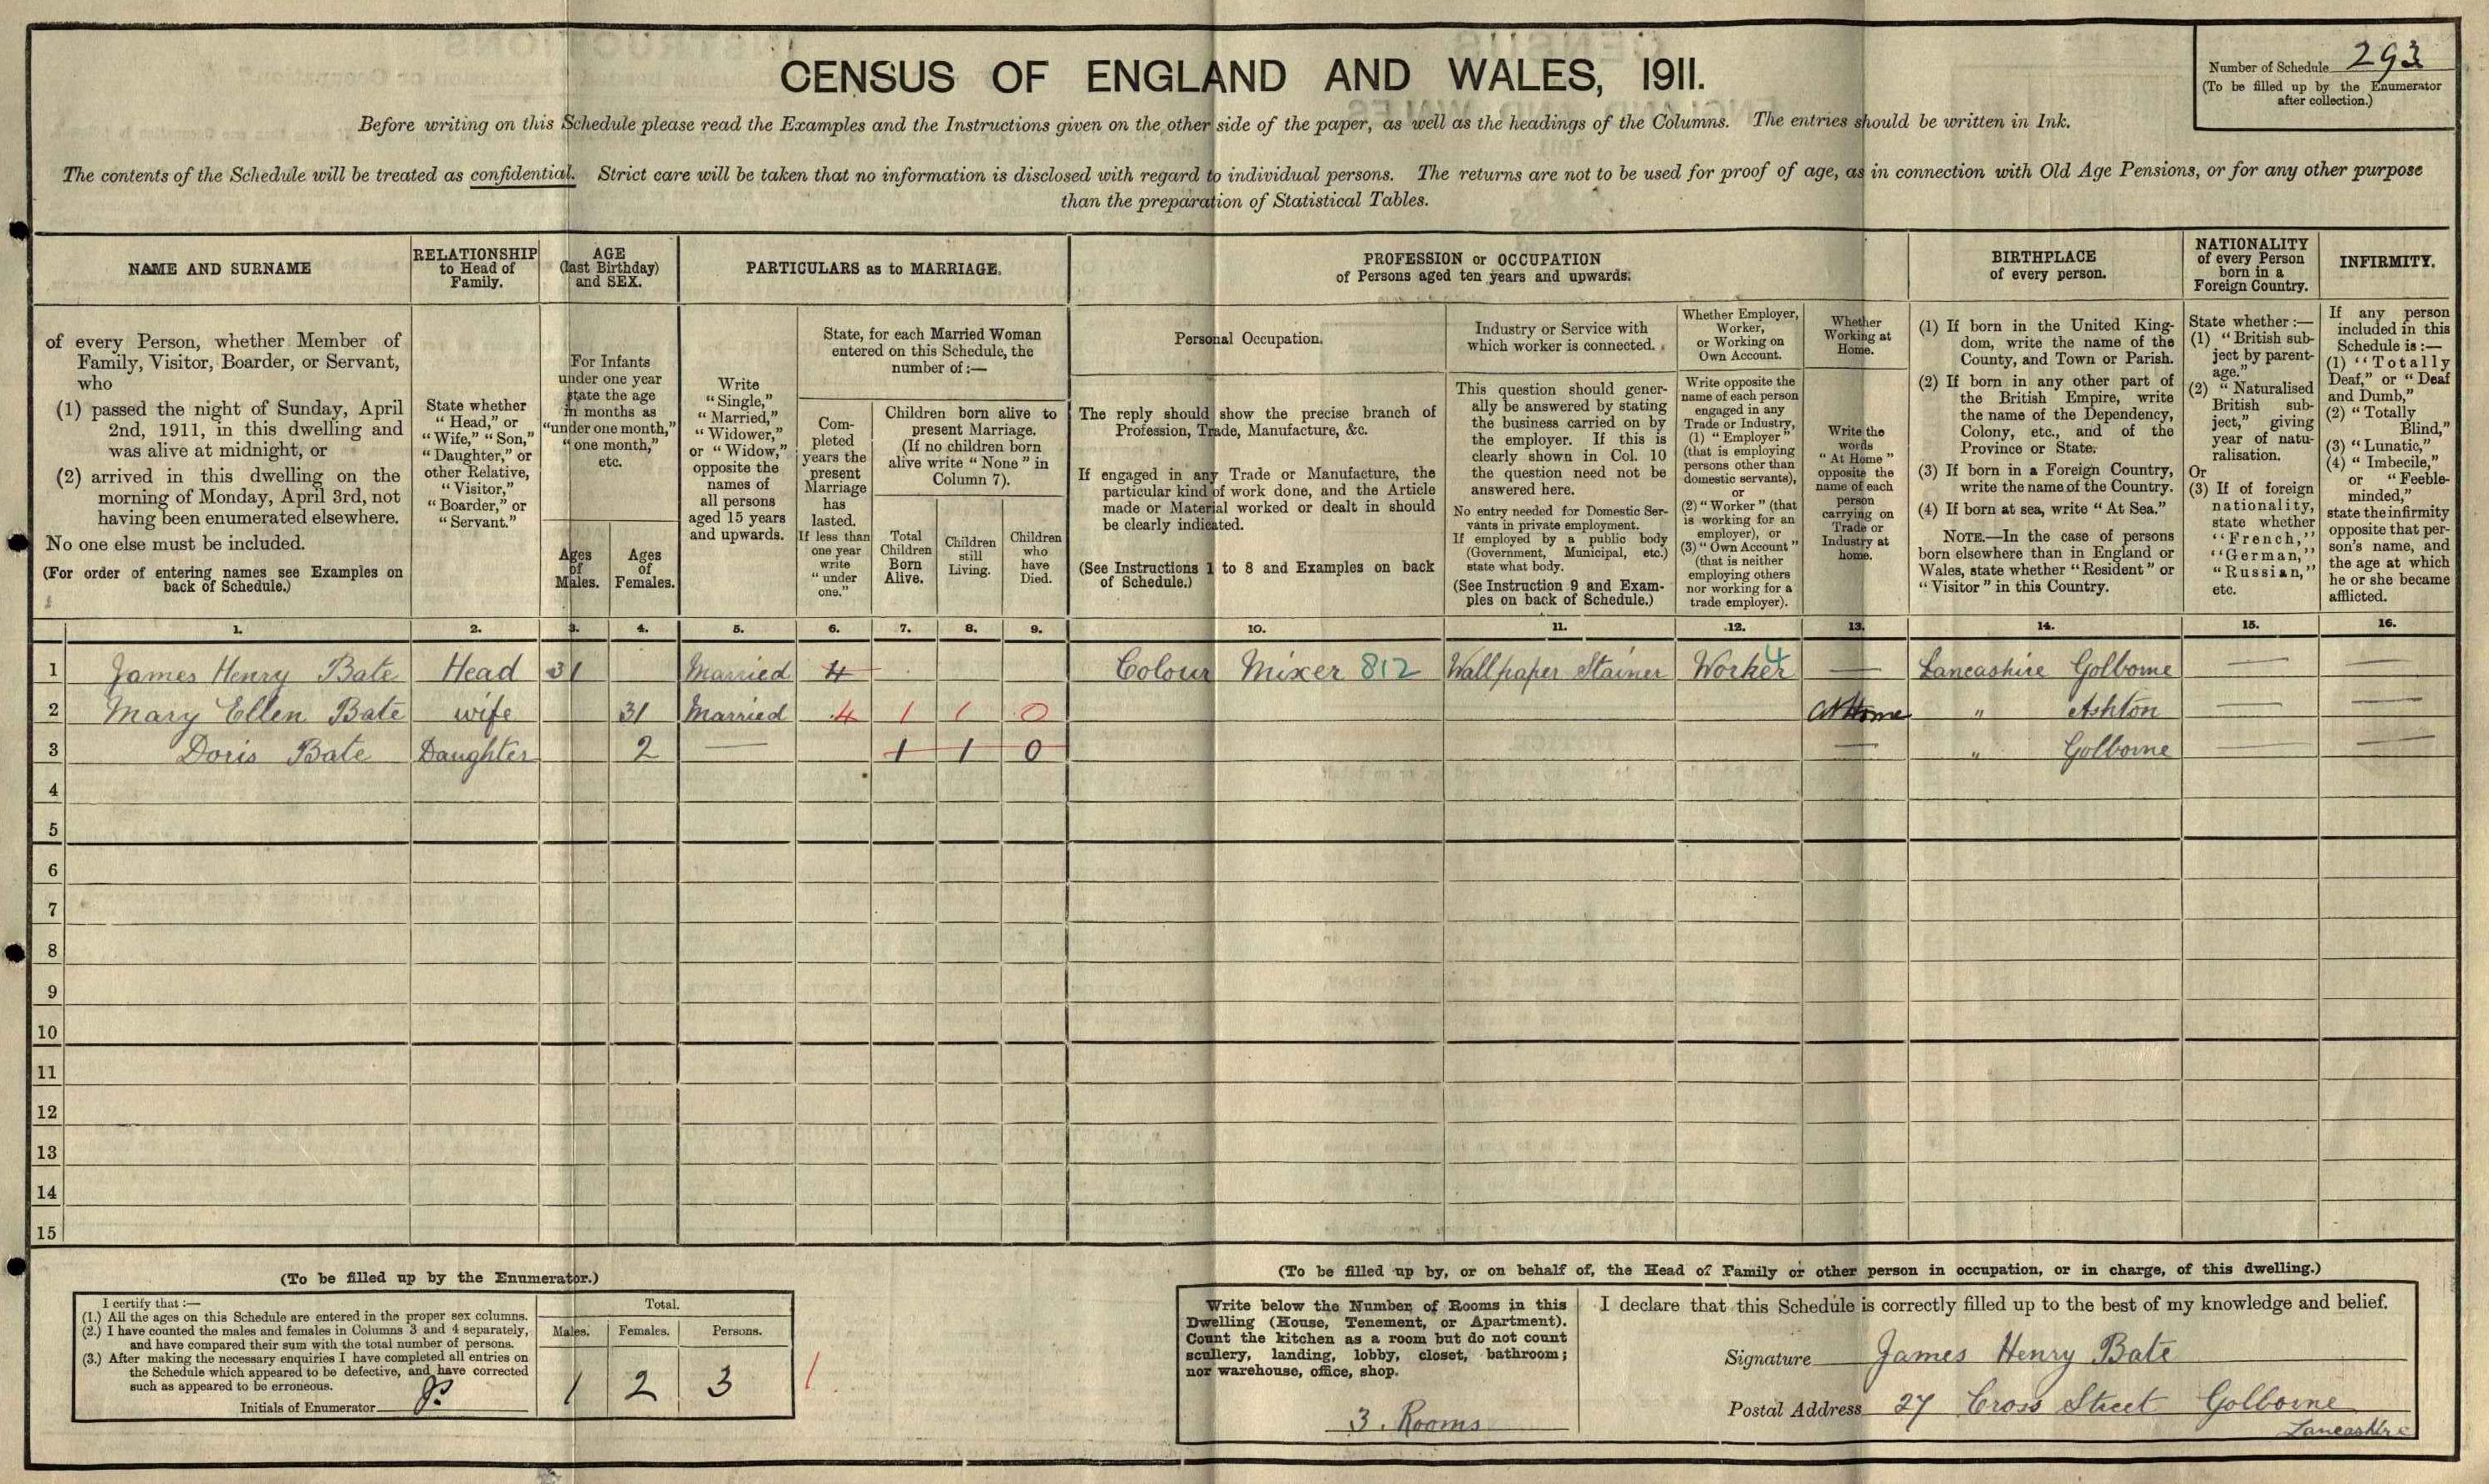 CENSUS OF ENGLAND AND WALES, 1911.
Number of Schedule 293
(To be filled up by the Enumerator
after collection.)
Before writing on this Schedule please read the Examples and the Instructions given on the other side of the paper, as well as the headings of the Columns. The entries should be written in Ink.
The contents of the Schedule will be treated as confidential. Strict care will be taken that no information is disclosed with regard to individual persons. The returns are not to be used for proof of age, as in connection with Old Age Pensions, or for any other purpose
than the preparation of Statistical Tables.
NAME AND SURNAME
of every Person, whether Member of
Family, Visitor, Boarder, or Servant,
who
(1) passed the night of Sunday, April
2nd, 1911, in this dwelling and
was alive at midnight, or
(2) arrived in this dwelling on the
morning of Monday, April 3rd, not
having been enumerated elsewhere.
No one else must be included.
(For order of entering names see Examples on
back of Schedule.)
RELATIONSHIP
to Head of
Family.
State whether
"Head," or
"Wife," "Son,"
"Daughter," or
other Relative,
"Visitor,"
"Boarder," or
"Servant."
AGE
(last Birthday)
and SEX.
For Infants
under one year
state the age
in months as
"under one month,"
"one month,"
etc.
Ages
of
Males.
Ages
of
Females.
PARTICULARS as to MARRIAGE.
Write
"Single,"
"Married,"
"Widower,"
or "Widow,"
opposite the
names of
all persons
aged 15 years
and upwards.
State, for each Married Woman
entered on this Schedule, the
number of :—
Com-
pleted
years the
present
Marriage
has
lasted.
If less than
one year
write
"under
one."
Children born alive to
present Marriage.
(If no children born
alive write "None" in
Column 7).
Total
Children
Born
Alive.
Children
still
Living.
Children
who
have
Died.
PROFESSION or OCCUPATION
of Persons aged ten years and upwards.
Personal Occupation.
The reply should show the precise branch of
Profession, Trade, Manufacture, &c.
If engaged in any Trade or Manufacture, the
particular kind of work done, and the Article
made or Material worked or dealt in should
be clearly indicated.
(See Instructions 1 to 8 and Examples on back
of Schedule.)
Industry or Service with
which worker is connected.
This question should gener-
ally be answered by stating
the business carried on by
the employer. If this is
clearly shown in Col. 10
the question need not be
answered here.
No entry needed for Domestic Ser-
vants in private employment.
If employed by a public body
(Government, Municipal, etc.)
state what body.
(See Instruction 9 and Exam-
ples on back of Schedule.)
Whether Employer,
Worker,
or Working on
Own Account.
Write opposite the
name of each person
engaged in any
Trade or Industry,
(1) "Employer"
(that is employing
persons other than
domestic servants),
or
(2) "Worker" (that
is working for an
employer), or
(3) "Own Account"
(that is neither
employing others
nor working for a
trade employer).
Whether
Working at
Home.
Write the
words
"At Home"
opposite the
name of each
person
carrying on
Trade or
Industry at
home.
BIRTHPLACE
of every person.
(1) If born in the United King-
dom, write the name of the
County, and Town or Parish.
(2) If born in any other part of
the British Empire, write
the name of the Dependency,
Colony, etc., and of the
Province or State.
(3) If born in a Foreign Country,
write the name of the Country.
(4) If born at sea, write "At Sea."
NOTE.—In the case of persons
born elsewhere than in England or
Wales, state whether "Resident" or
"Visitor" in this Country.
NATIONALITY
of every Person
born in a
Foreign Country.
State whether :—
(1) "British sub-
ject by parent-
age."
(2) "Naturalised
British sub-
ject," giving
year of natu-
ralisation.
Or
(3) If of foreign
nationality,
state whether
"French,"
"German,"
"Russian,"
etc.
INFIRMITY.
If any person
included in this
Schedule is :—
(1) "Totally
Deaf," or "Deaf
and Dumb,"
(2) "Totally
Blind,"
(3) "Lunatic,"
(4) "Imbecile,"
or "Feeble-
minded,"
state the infirmity
opposite that per-
son's name, and
the age at which
he or she became
afflicted.
1. 2. 3. 4. 5. 6. 7. 8. 9. 10. 11. 12. 13. 14. 15. 16.
1 James Henry Bate Head 31 Married 4 Colour Mixer 812 Wallpaper Stainer Worker 4 — Lancashire Golborne — —
2 Mary Ellen Bate wife 31 Married 4 1 1 0 At Home " Ashton — —
3 Doris Bate Daughter 2 — 1 1 0 — " Golborne — —
4
5
6
7
8
9
10
11
12
13
14
15
(To be filled up by the Enumerator.)
I certify that :—
(1.) All the ages on this Schedule are entered in the proper sex columns.
(2.) I have counted the males and females in Columns 3 and 4 separately,
and have compared their sum with the total number of persons.
(3.) After making the necessary enquiries I have completed all entries on
the Schedule which appeared to be defective, and have corrected
such as appeared to be erroneous.
Initials of Enumerator
Total.
Males. Females. Persons.
1 2 3
(To be filled up by, or on behalf of, the Head of Family or other person in occupation, or in charge, of this dwelling.)
Write below the Number of Rooms in this
Dwelling (House, Tenement, or Apartment).
Count the kitchen as a room but do not count
scullery, landing, lobby, closet, bathroom;
nor warehouse, office, shop.
3. Rooms
I declare that this Schedule is correctly filled up to the best of my knowledge and belief.
Signature James Henry Bate
Postal Address 27 Cross Street Golborne
Lancashire